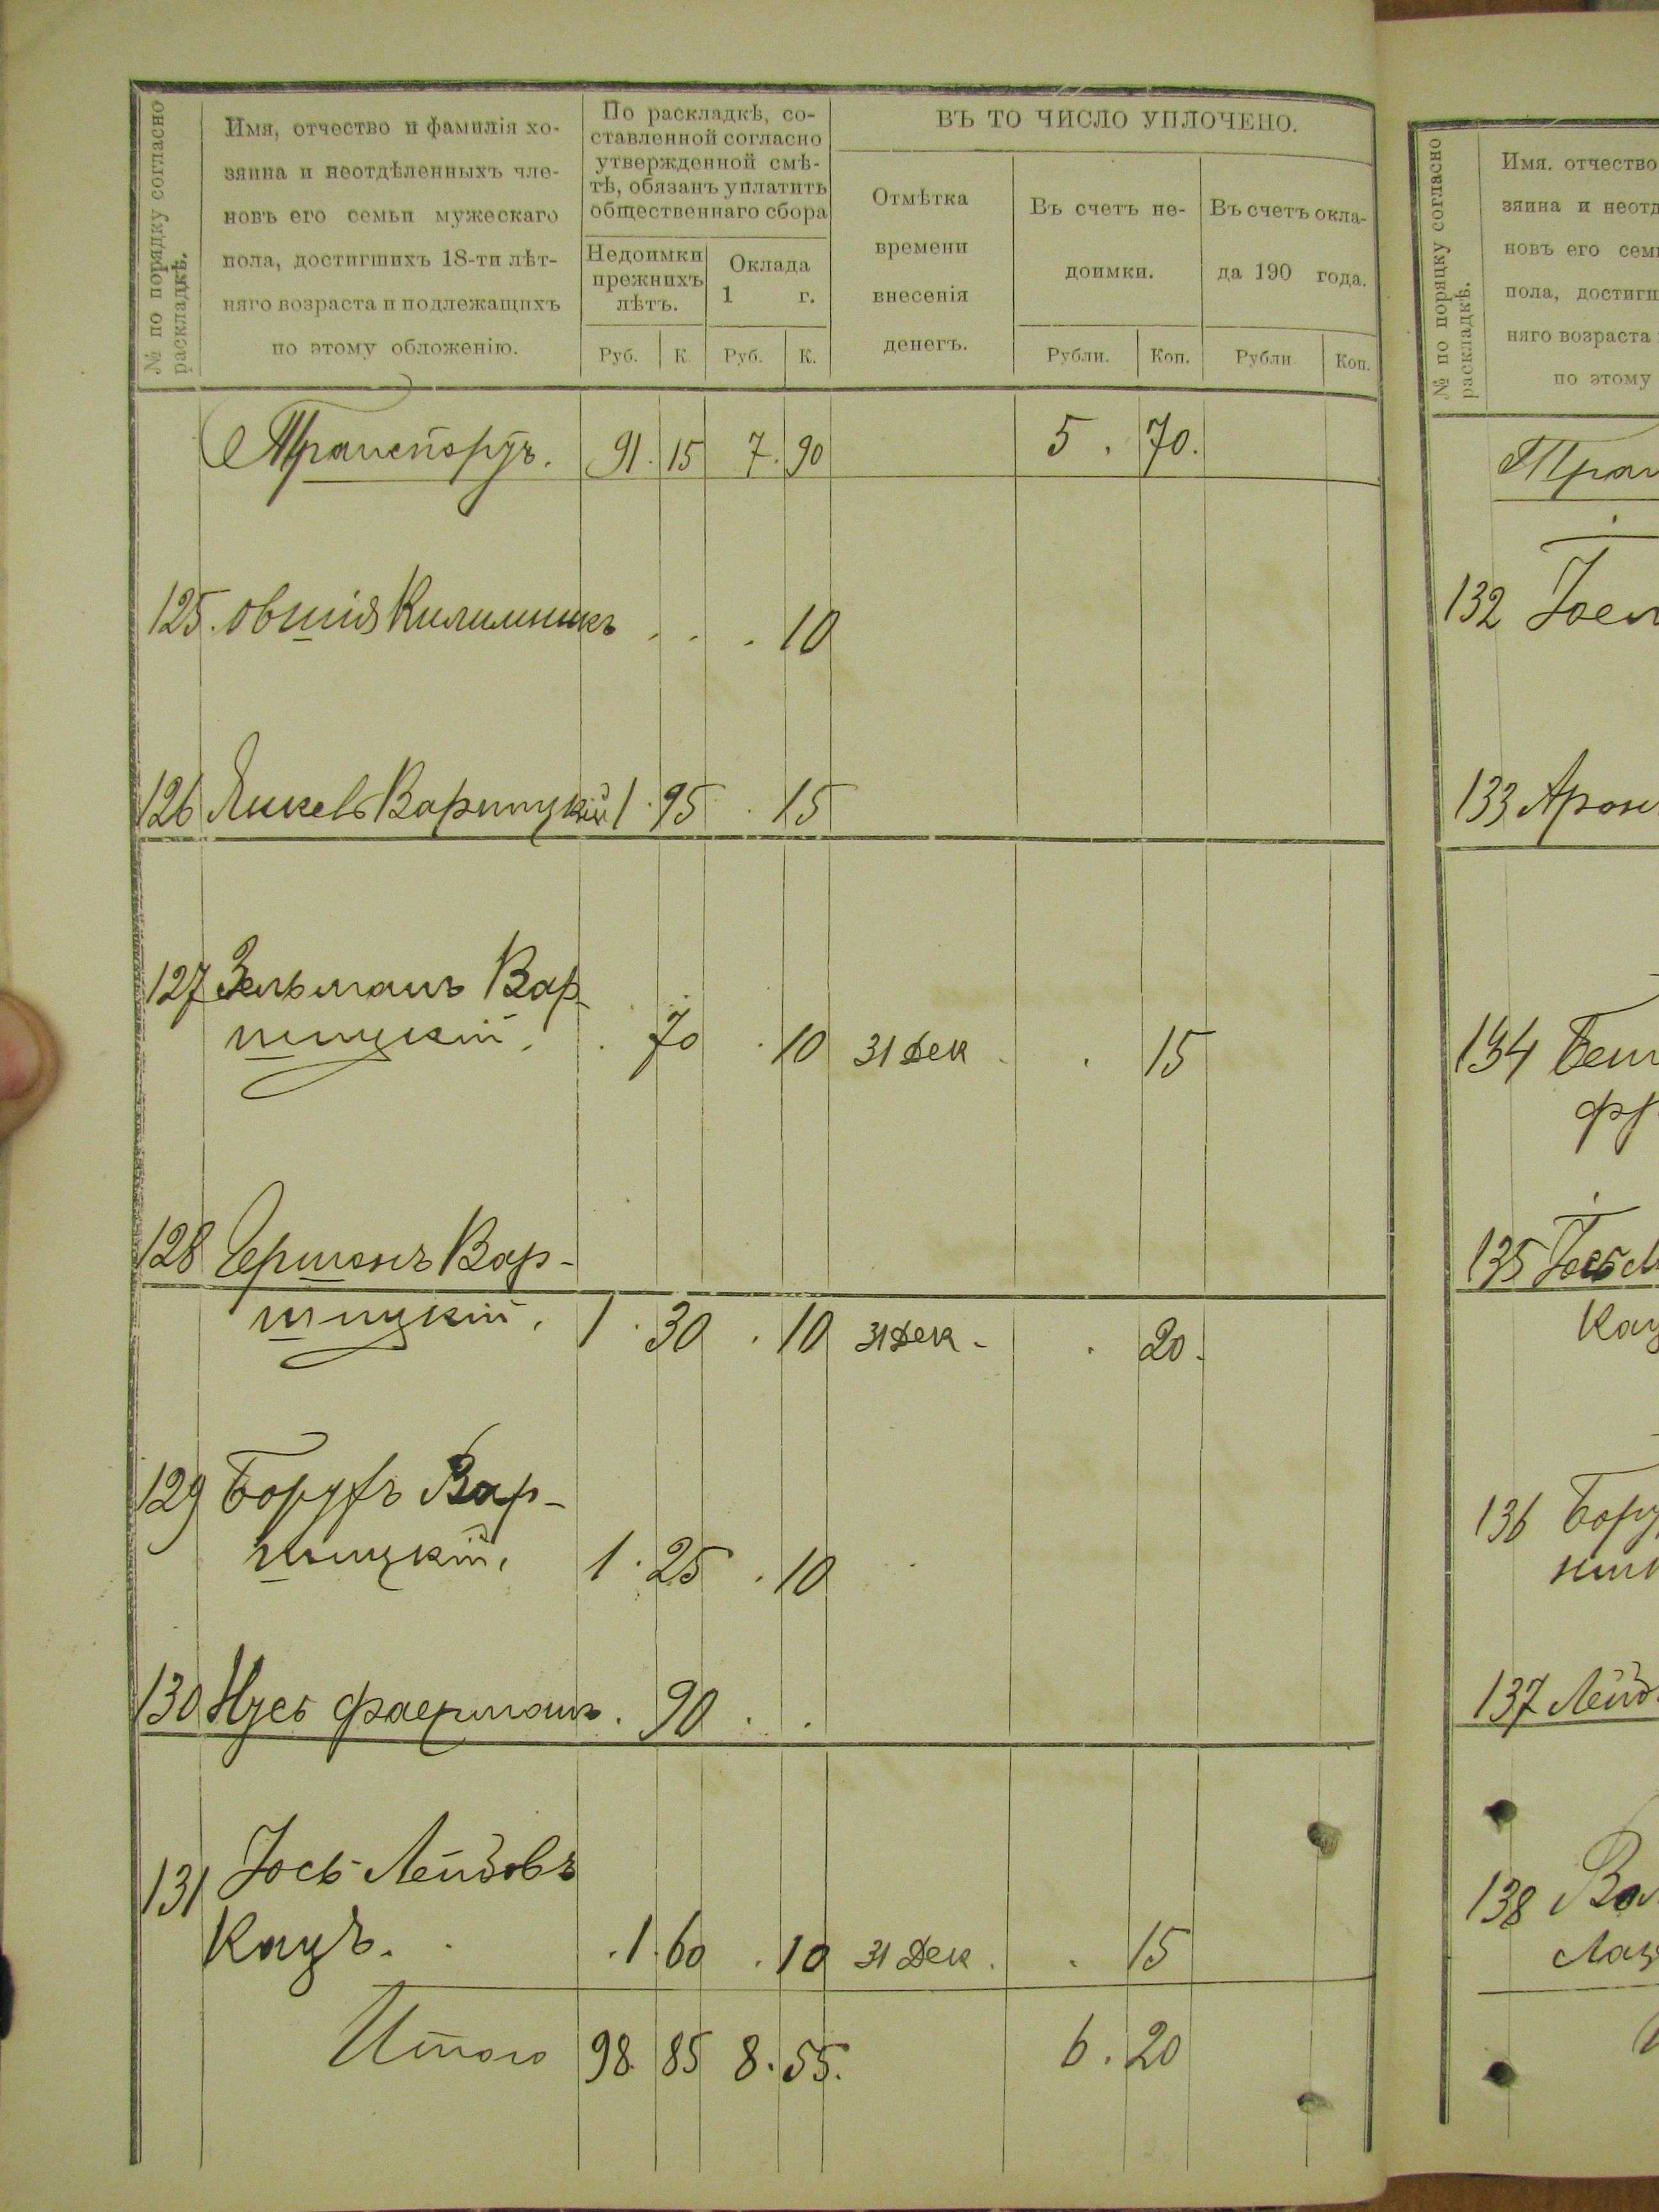 № по порядку согласно раскладкѣ.
Имя, отчество и фамилія хо-
зяина и неотдѣленныхъ чле-
новъ его семьи мужескаго
пола, достигшихъ 18-ти лѣт-
няго возраста и подлежащихъ
по этому обложенію.
По раскладкѣ, со-
ставленной согласно
утвержденной смѣ-
тѣ, обязанъ уплатить
общественнаго сбора
Недоимки
прежнихъ
лѣтъ.
Оклада
1 г.
Руб. К. Руб. К.
ВЪ ТО ЧИСЛО УПЛОЧЕНО.
Отмѣтка
времени
внесенія
денегъ.
Въ счетъ не-
доимки.
Рубли. Коп.
Въ счетъ окла-
да 190 года.
Рубли Коп.
Транспортъ. 91. 15 7. 90 5. 70.
125. Овшія Килимникъ . . . 10
126 Янкель Варшицкій 1. 95 . 15
127 Зельманъ Вар-
шицкій. . 70 . 10 31 Дек - . 15
128 Гершонъ Вар-
шицкій. 1. 30 . 10 31 Дек - . 20.
129 Борухъ Вар-
шицкій. 1. 25 . 10
130 Нусъ Фаерманъ . 90 . .
131 Іось Лейзовъ
Кацъ. . 1. 60 . 10 31 Дек. . 15
Итого 98. 85 8. 55. 6. 20
№ по порядку согласно раскладкѣ.
Имя. отчество
зяина и неотд
новъ его сем
пола, достиг
няго возраста
по этому
Тран
132 Іос
133 Арон
134
135
Кац
136 Бору
137 Лейз
138